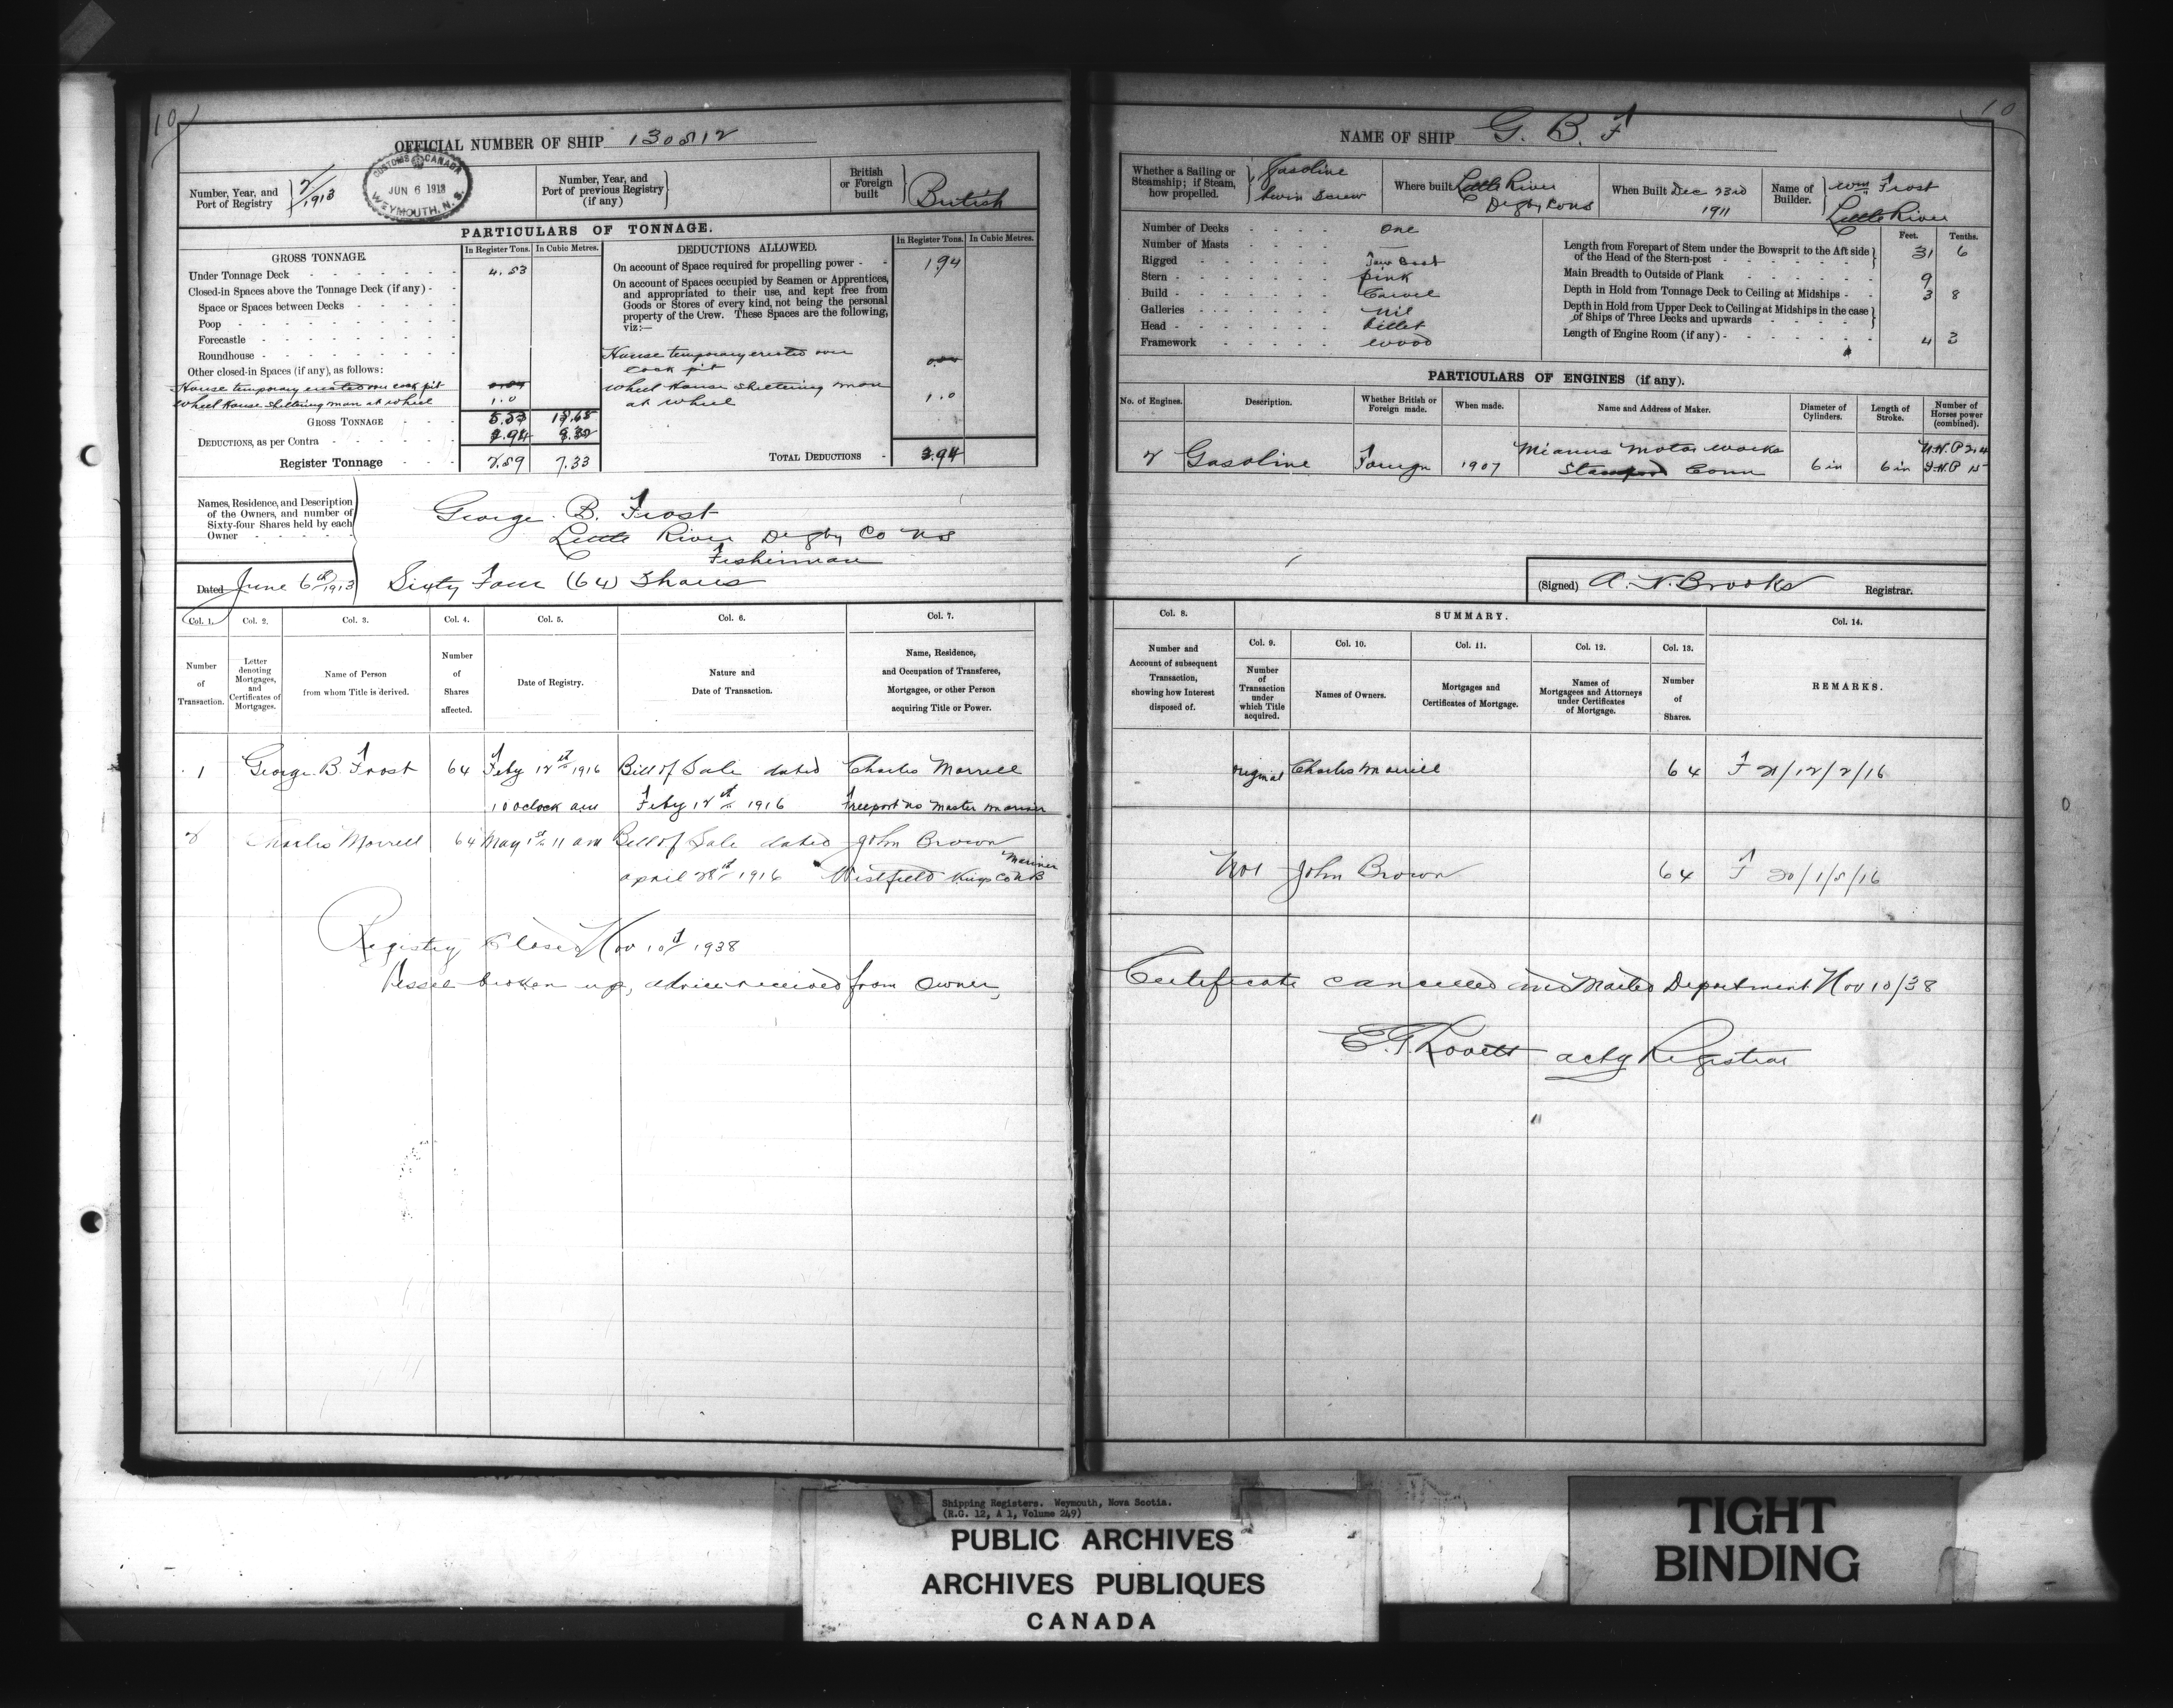 10
OFFICIAL NUMBER OF SHIP 130512
Number, Year, and Port of Registry
2/1913
CUSTOMS CANADA
JUN 6 1913
WEYMOUTH, N. S.
Number, Year, and Port of previous Registry (if any)
British or Foreign built
British
PARTICULARS OF TONNAGE.
GROSS TONNAGE.
In Register Tons.
In Cubic Metres.
DEDUCTIONS ALLOWED.
In Register Tons.
In Cubic Metres.
Under Tonnage Deck 4.53
Closed-in Spaces above the Tonnage Deck (if any)
Space or Spaces between Decks
Poop
Forecastle
Roundhouse
Other closed-in Spaces (if any), as follows:
House temporary erected over cock pit
Wheel House sheltering man at wheel 1.0
GROSS TONNAGE 5.53
DEDUCTIONS, as per Contra
Register Tonnage 2.59 7.33
On account of Space required for propelling power 1.94
On account of Spaces occupied by Seamen or Apprentices,
and appropriated to their use, and kept free from
Goods or Stores of every kind, not being the personal
property of the Crew. These Spaces are the following,
viz:—
House temporary erected over
cock pit
Wheel House sheltering man
at wheel 1.0
TOTAL DEDUCTIONS 2.94
Names, Residence, and Description
of the Owners, and number of
Sixty-four Shares held by each
Owner
George B. Frost
Little River Digby Co NS
Fisherman
Dated June 6th 1913
Sixty Four (64) Shares
Col. 1. Col. 2. Col. 3. Col. 4. Col. 5. Col. 6. Col. 7.
Number of Transaction.
Letter denoting Mortgages, and Certificates of Mortgages.
Name of Person from whom Title is derived.
Number of Shares affected.
Date of Registry.
Nature and Date of Transaction.
Name, Residence, and Occupation of Transferee, Mortgagee, or other Person acquiring Title or Power.
1 George B. Frost 64 Feby 12th 1916 Bill of Sale dated Charles Morrell
10 oclock am Feby 12th 1916 Freeport NS Master Mariner
2 Charles Morrell 64 May 1st 11 am Bill of Sale dated John Brown
Mariner
April 28th 1916 Westfield Kings Co NB
Registry Closed Nov 10th 1938
Vessel broken up, advice received from owner,
10
NAME OF SHIP G. B. F
Whether a Sailing or Steamship; if Steam, how propelled.
Gasoline
twin Screw
Where built Little River
Digby Co NS
When Built Dec 23rd
1911
Name of Builder.
Wm Frost
Little River
Number of Decks one
Number of Masts —
Rigged
Stern pink
Build Carvel
Galleries nil
Head billet
Framework wood
Feet. Tenths.
Length from Forepart of Stem under the Bowsprit to the Aft side
of the Head of the Stern-post 31 6
Main Breadth to Outside of Plank 9
Depth in Hold from Tonnage Deck to Ceiling at Midships 3 8
Depth in Hold from Upper Deck to Ceiling at Midships in the case
of Ships of Three Decks and upwards
Length of Engine Room (if any) 4 3
PARTICULARS OF ENGINES (if any).
No. of Engines.
Description.
Whether British or Foreign made.
When made.
Name and Address of Maker.
Diameter of Cylinders.
Length of Stroke.
Number of Horses power (combined).
2 Gasoline Foreign 1907 Mianus Motor Works
Stamford Conn 6 in 6 in
N.H.P 2.4
I.H.P 15
(Signed) A. N. Brooks Registrar.
Col. 8.
SUMMARY.
Col. 14.
Number and Account of subsequent Transaction, showing how Interest disposed of.
Col. 9. Col. 10. Col. 11. Col. 12. Col. 13.
Number of Transaction under which Title acquired.
Names of Owners.
Mortgages and Certificates of Mortgage.
Names of Mortgagees and Attorneys under Certificates of Mortgage.
Number of Shares.
REMARKS.
original Charles Morrell 64 F 21/12/2/16
No 1 John Brown 64 F 20/1/5/16
Certificate cancelled and Mailed Department Nov 10/38
E. F. Lovett actg Registrar
Shipping Registers. Weymouth, Nova Scotia.
(R.G. 12, A 1, Volume 249)
PUBLIC ARCHIVES
ARCHIVES PUBLIQUES
CANADA
TIGHT
BINDING